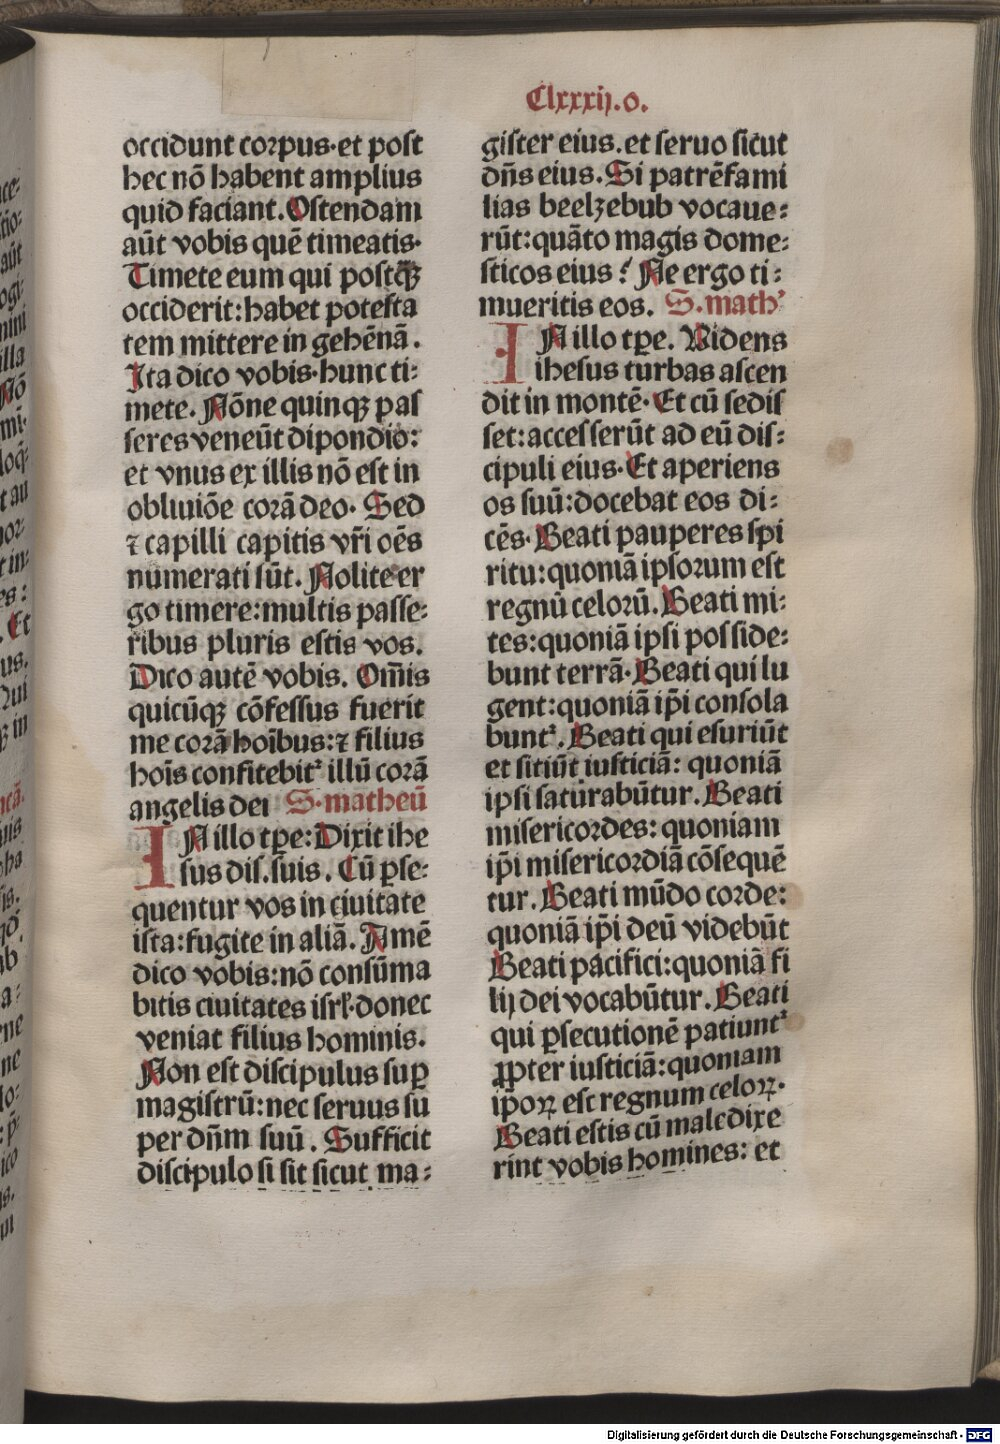 Clxxxij.o.
occidunt corpus·et post
hec nō habent amplius
quid faciant. Ostendam
aūt vobis quē timeatis·
Timete eum qui postq̄ꝫ
occiderit: habet potesta
tem mittere in gehēnā.
Ita dico vobis·hunc ti:
mete. Nōne quinqꝫ pas
seres veneūt dipondio:
et vnus ex illis nō est in
obliuiōe corā deo· Sed
⁊ capilli capitis vr̄i oēs
numerati sūt. Nolite er
go timere: multis passe:
ribus pluris estis vos.
Dico autē vobis. Om̄is
quicūqꝫ cōfessus fuerit
me corā hoībus: ⁊ filius
hoīs confitebitᷣ illū corā
angelis dei S·matheū
IN illo tꝑe: Dixit ihe
sus dis. suis. Cū ꝑse:
quentur vos in ciuitate
ista: fugite in aliā. Amē
dico vobis: nō consūma
bitis ciuitates isrł·donec
veniat filius hominis.
Non est discipulus suꝑ
magistrū: nec seruus su
per dn̄m suū. Sufficit
discipulo si sit sicut ma:
gister eius. et seruo sicut
dn̄s eius. Si patrēfami
lias beelzebub vocaue:
rūt: quāto magis dome:
sticos eius? Ne ergo ti:
mueritis eos. S. math'
IN illo tꝑe. Videns
ihesus turbas ascen
dit in montē· Et cū sedis
set: accesserūt ad eū dis:
cipuli eius· Et aperiens
os suū: docebat eos di:
cēs· Beati pauperes spi
ritu: quoniā ipsorum est
regnū celorū. Beati mi:
tes: quoniā ipsi posside:
bunt terrā· Beati qui lu
gent: quoniā ip̄i consola
buntᷣ. Beati qui esuriūt
et sitiūt iusticiā: quoniā
ipsi saturabūtur. Beati
misericordes: quoniam
ip̄i misericordiā cōsequē
tur. Beati mūdo corde:
quoniā ip̄i deū videbūt
Beati pacifici: quoniā fi
lij dei vocabūtur. Beati
qui ꝑsecutionē patiuntᷣ
ꝓpter iusticiā: quoniam
ip̄oꝝ est regnum celoꝝ·
Beati estis cū maledixe
rint vobis homines: et
Digitalisierung gefördert durch die Deutsche Forschungsgemeinschaft - DFG